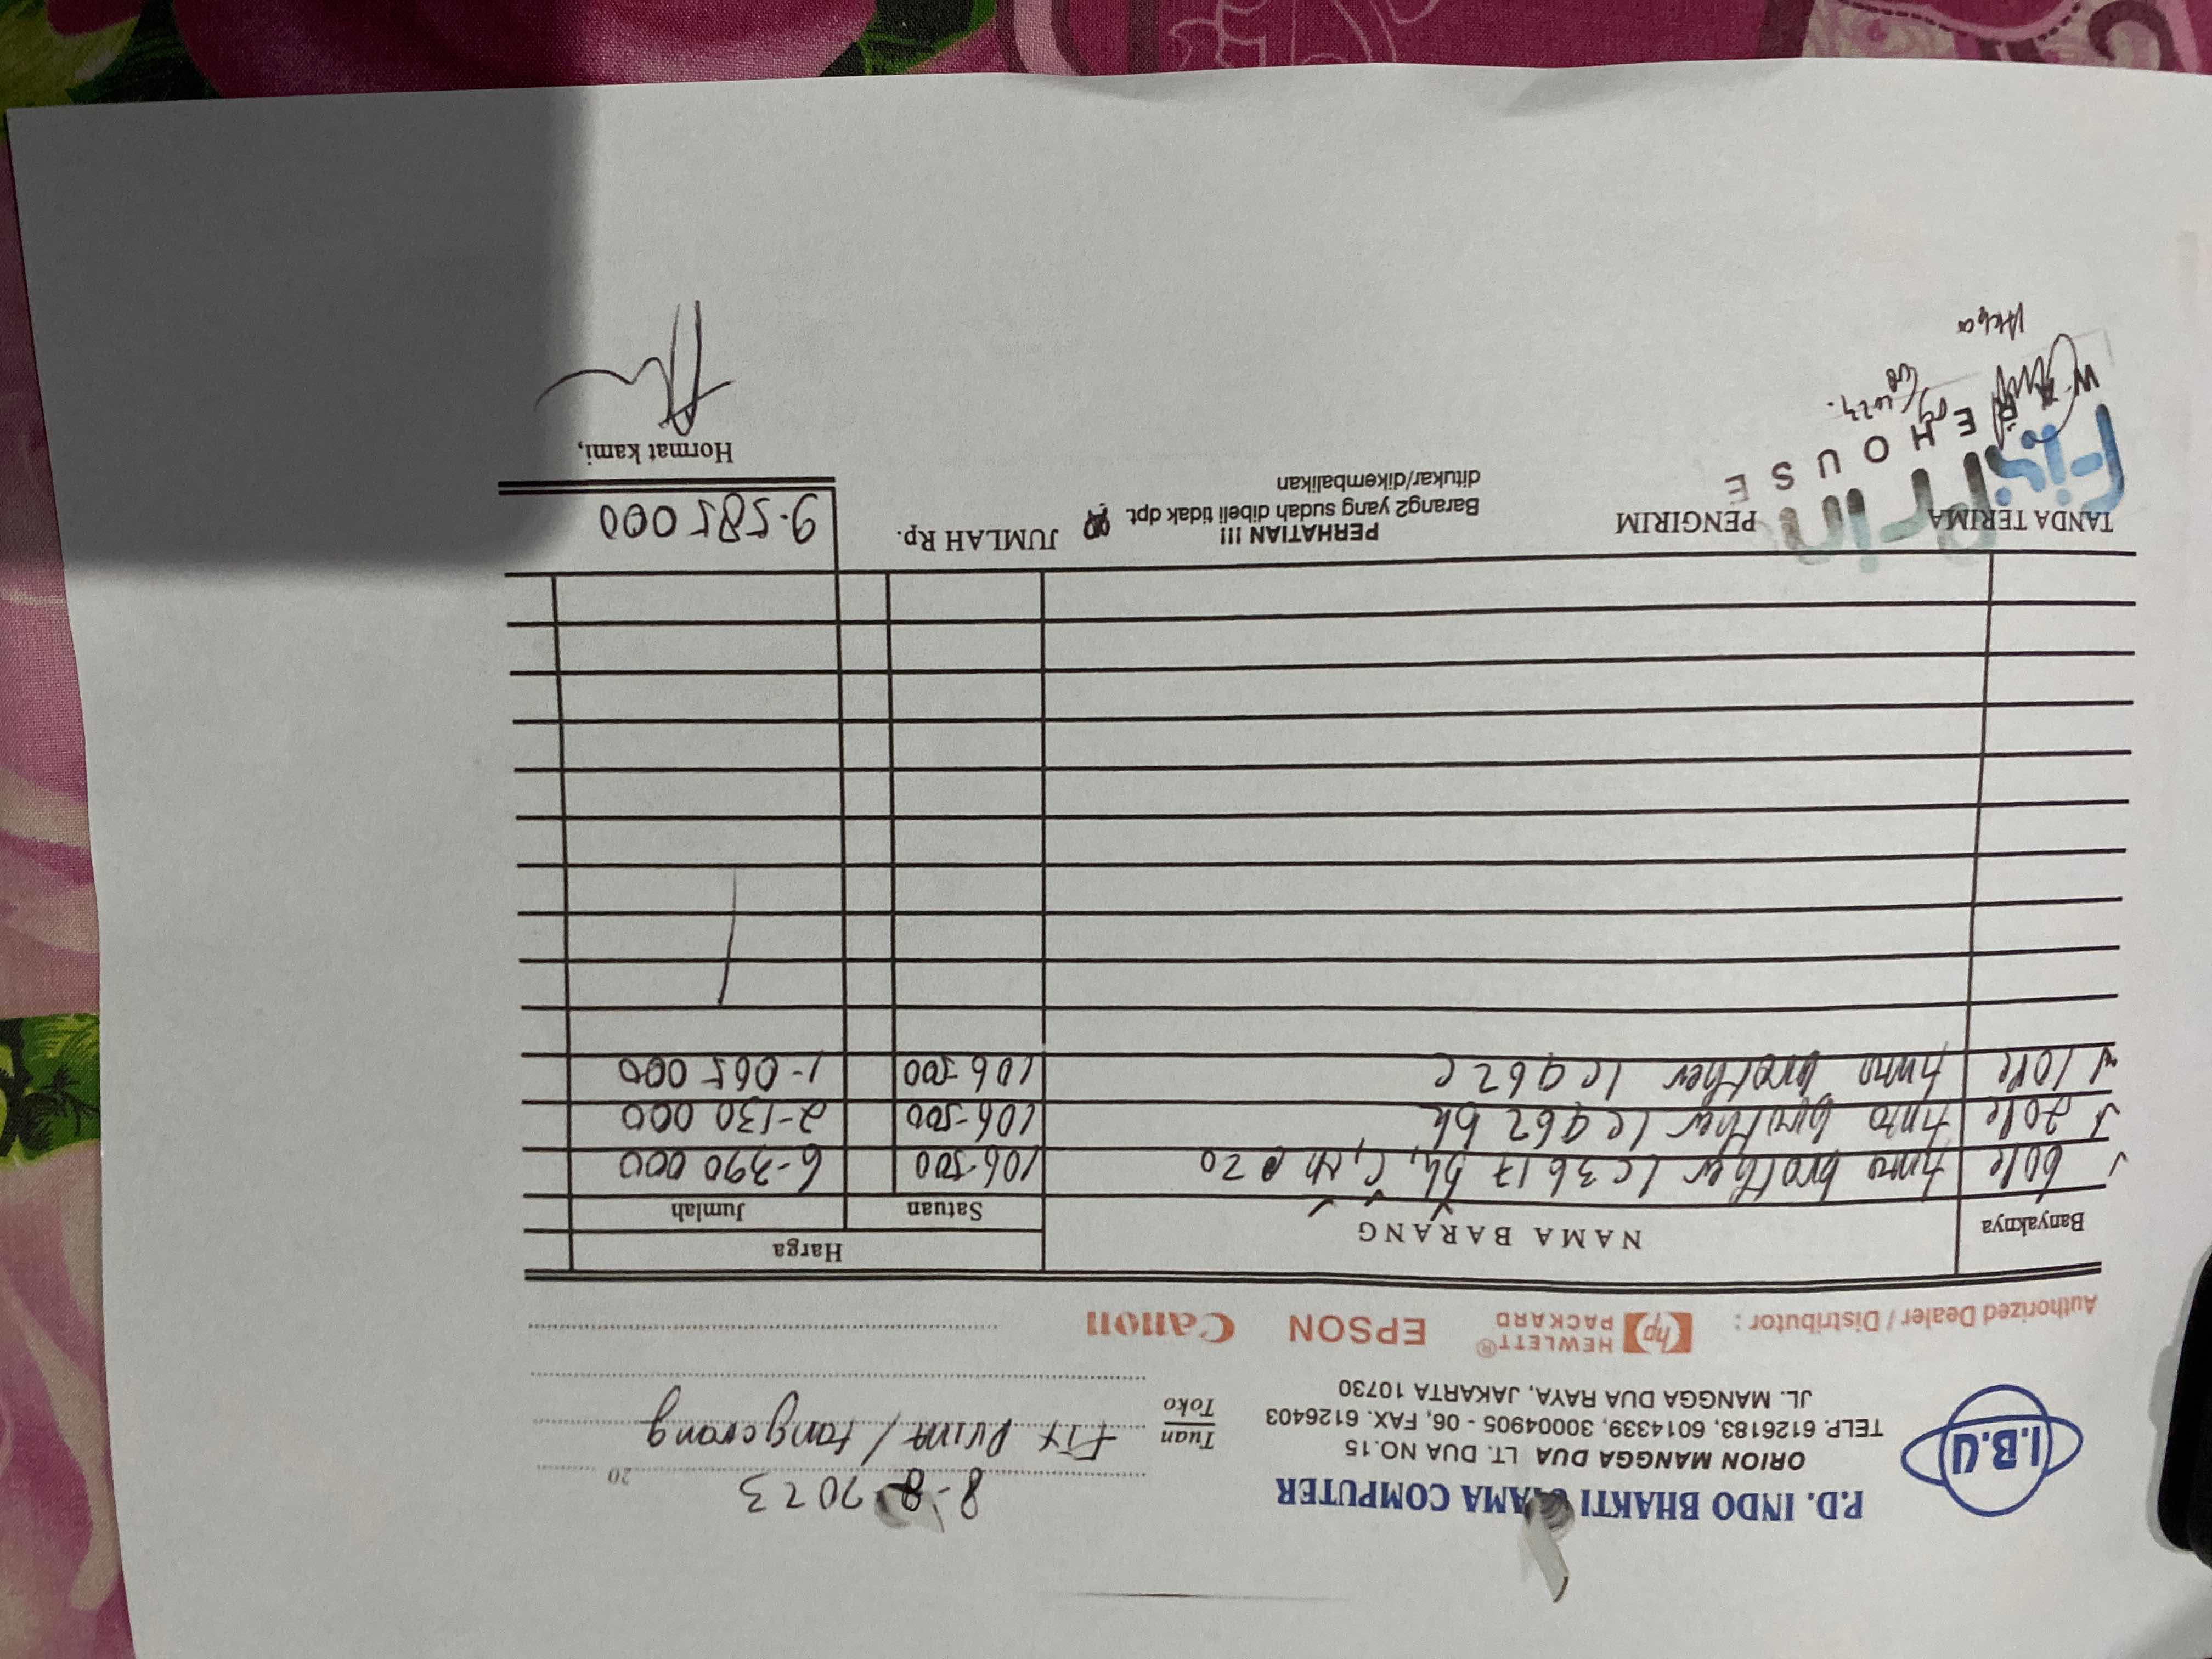 I.B.U
P.D. INDO BHAKTI UTAMA COMPUTER
ORION MANGGA DUA LT. DUA NO.15
TELP. 6126183, 6014339, 30004905 - 06, FAX. 6126403
JL. MANGGA DUA RAYA, JAKARTA 10730
8-8-2023 20
Tuan
Toko
Fix Print / Tangerang
Authorized Dealer / Distributor : hp HEWLETT® PACKARD EPSON Canon
Banyaknya NAMA BARANG Harga
Satuan Jumlah
60 Pc brother lc 3617 bk, c, m @ 20 106-500 6-390 000
20 Pc brother lc 462 bk 106-500 2-130 000
10 Pc brother lc 462 c 106-500 1-065 000
TANDA TERIMA PENGIRIM
PERHATIAN !!!
Barang2 yang sudah dibeli tidak dpt.
ditukar/dikembalikan
JUMLAH Rp. 9-585 000
Hormat kami,
WAREHOUSE